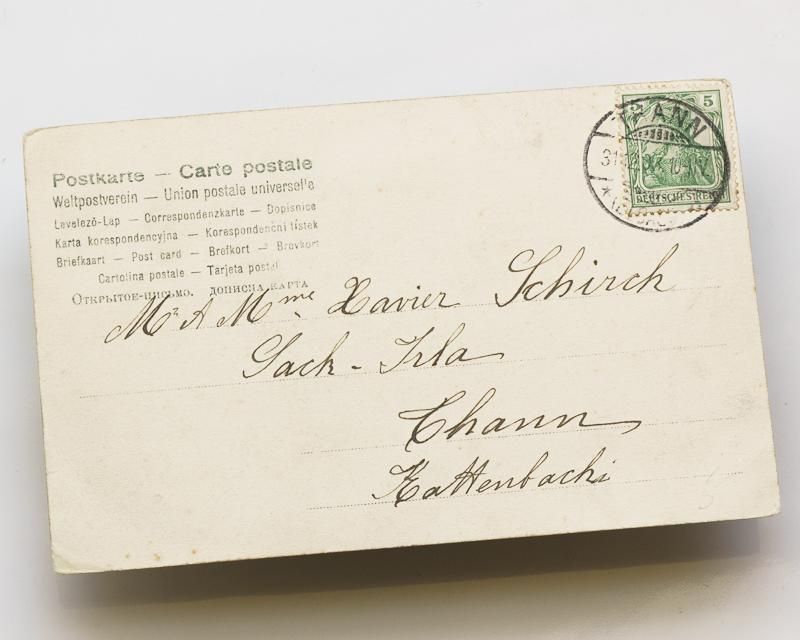 Postkarte — Carte postale
Weltpostverein — Union postale universelle
Levelező-Lap — Correspondenzkarte — Dopisnice
Karta korespondencyjna — Korespondenční lístek
Briefkaart — Post card — Brefkort — Brevkort
Cartolina postale — Tarjeta postal
Открытое письмо. дописна карта
5 5
THANN
DEUTSCHES REICH
Mr & Mme Xavier Schirch
Sack-Irla
Thann
Kattenbachi